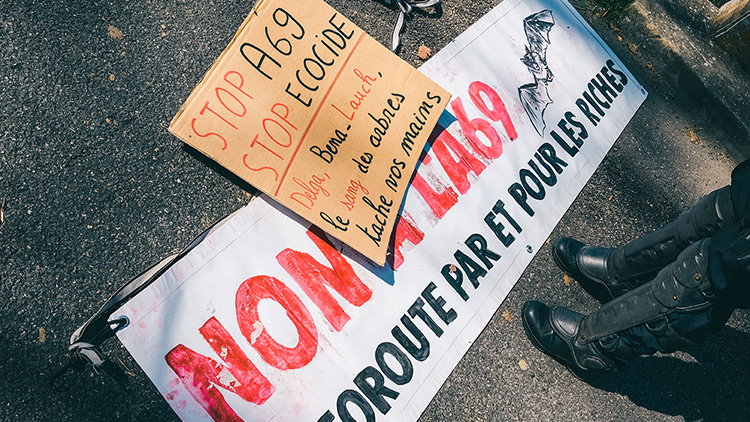 STOP A69
STOP ECOCIDE
Delga, Bena-Lauch,
le sang des arbres
tache vos mains
NON A L'A69
TOROUTE PAR ET POUR LES RICHES